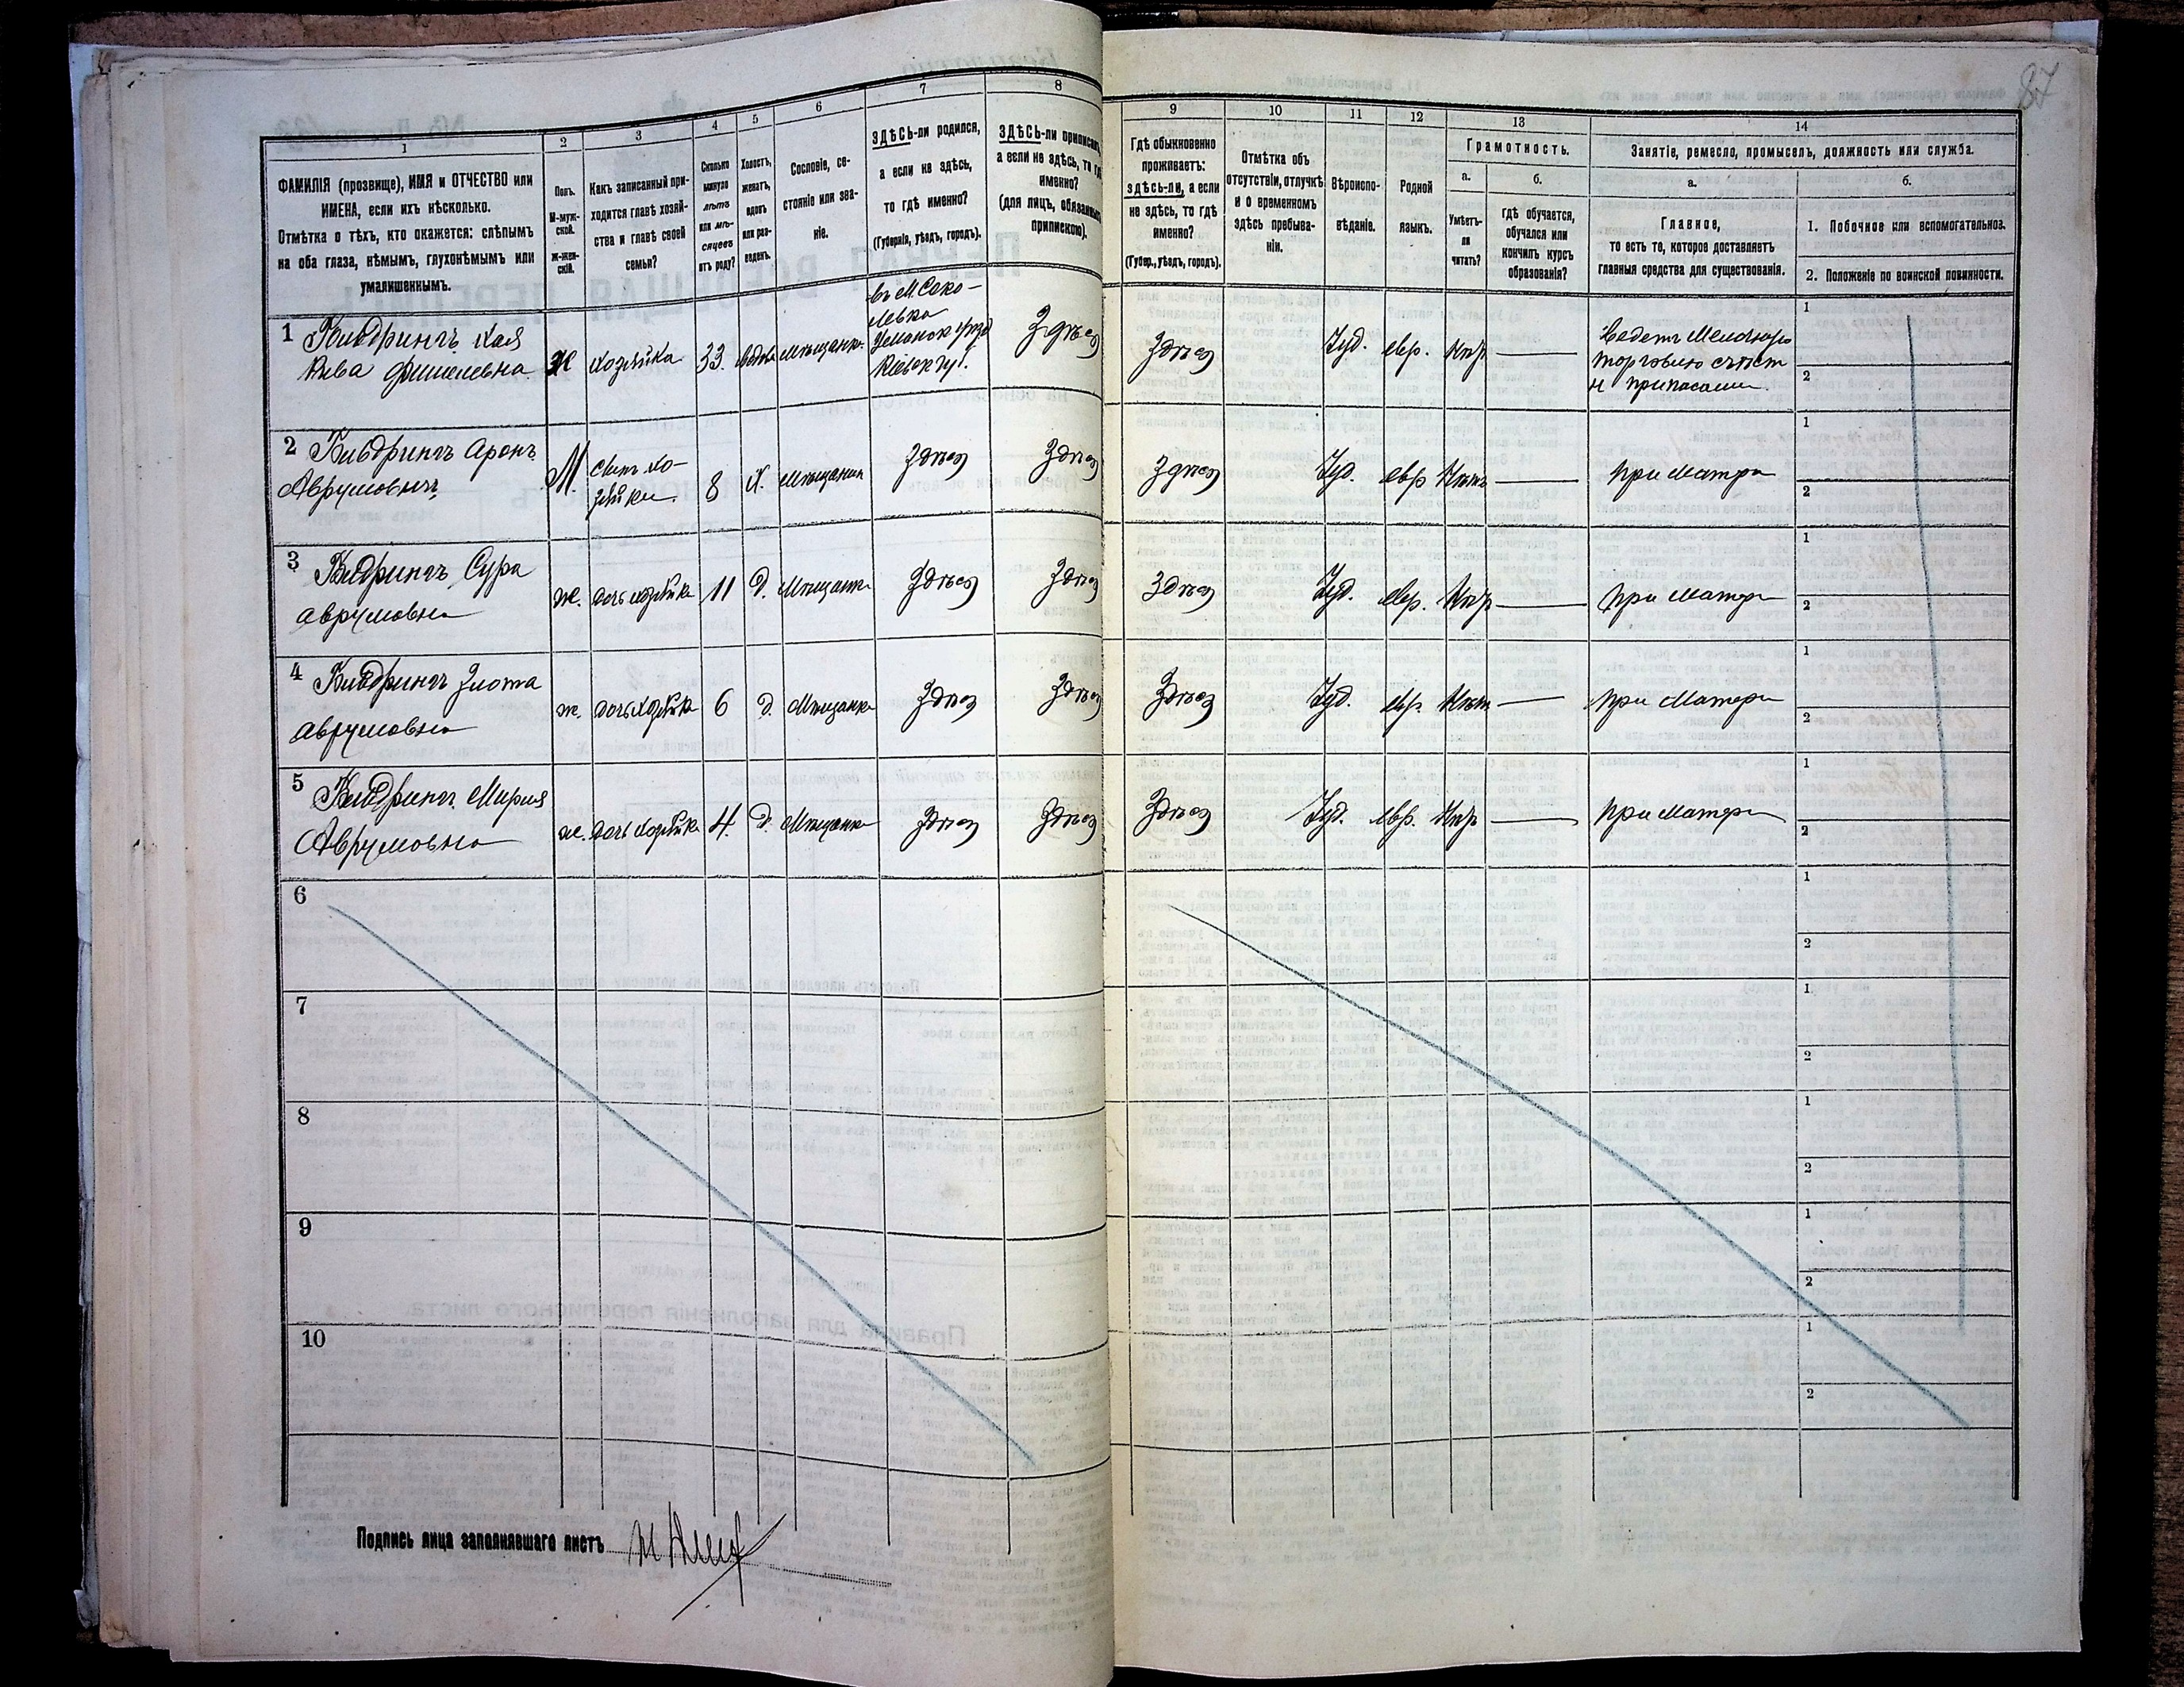 87
1
2
3
4
5
6
7
8
9
10
11
12
13
14
ФАМИЛІЯ (прозвище), ИМЯ и ОТЧЕСТВО или
ИМЕНА, если ихъ нѣсколько.
Отмѣтка о тѣхъ, кто окажется: слѣпымъ
на оба глаза, нѣмымъ, глухонѣмымъ или
умалишеннымъ.
Полъ.
М-муж-
ской.
ж-жен-
скій.
Какъ записанный при-
ходится главѣ хозяй-
ства и главѣ своей
семьи?
Сколько
минуло
лѣтъ
или мѣ-
сяцевъ
отъ роду?
Холостъ,
женатъ,
вдовъ
или раз-
веденъ.
Сословіе, со-
стояніе или зва-
ніе.
ЗДѢСЬ-ли родился,
а если не здѣсь,
то гдѣ именно?
(Губернія, уѣздъ, городъ).
ЗДѢСЬ-ли приписанъ,
а если не здѣсь, то гдѣ
именно?
(для лицъ, обязанныхъ
припискою).
Гдѣ обыкновенно
проживаетъ:
здѣсь-ли, а если
не здѣсь, то гдѣ
именно?
(Губер., уѣздъ, городъ).
Отмѣтка объ
отсутствіи, отлучкѣ
и о временномъ
здѣсь пребыва-
ніи.
Вѣроиспо-
вѣданіе.
Родной
языкъ.
Грамотность.
а.
б.
Умѣетъ-
ли
читать?
Гдѣ обучается,
обучался или
кончилъ курсъ
образованія?
Занятіе, ремесло, промыселъ, должность или служба.
а.
б.
Главное,
то есть то, которое доставляетъ
главныя средства для существованія.
1. Побочное или вспомогательное.
2. Положеніе по воинской повинности.
1 Хая
Рива Фишелевна Ж хозяйка 33. вдова мѣщанка
въ М. Соко-
левка
Кіевск гу.
Здѣсь Здѣсь Іуд. евр. Нѣт
Ведетъ Мелочную
торговлю съѣст
н припасами
1
2
2 Аронъ
Аврумовичъ М. сынъ хо-
зяйки. 8 Х. мѣщанин Здѣсь Здѣсь Здѣсь Іуд. евр Нѣтъ при Матери
1
2
3 Сура
аврумовна ж. дочь хозяйки 11 Д. Мѣщанка Здѣсь Здѣсь Здѣсь Іуд. евр. Нѣт при Матери
1
2
4 Злота
аврумовна ж. дочь хозяйки 6 д. Мѣщанка Здѣсь Здѣсь Здѣсь Іуд. евр. Нѣт при Матери
1
2
5 Мирия
Аврумовна ж. дочь хозяйки 4. Д. Мѣщанка Здѣсь Здѣсь Здѣсь Іуд. евр. Нѣт при Матери
1
2
6
1
2
7
1
2
8
1
2
9
1
2
10
1
2
Подпись лица заполнявшаго листъ